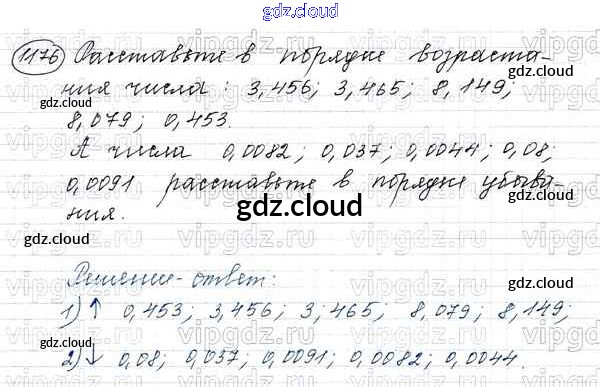 gdz.cloud
1176 Расставьте в порядке возраста-
ния числа: 3,456; 3,465; 8,149;
8,079; 0,453.
А числа 0,0082; 0,037; 0,0044; 0,08;
0,0091 расставьте в порядке убыва-
ния.
gdz.cloud
Решение-ответ:
1) ↑ 0,453; 3,456; 3,465; 8,079; 8,149;
2) ↓ 0,08; 0,037; 0,0091; 0,0082; 0,0044.